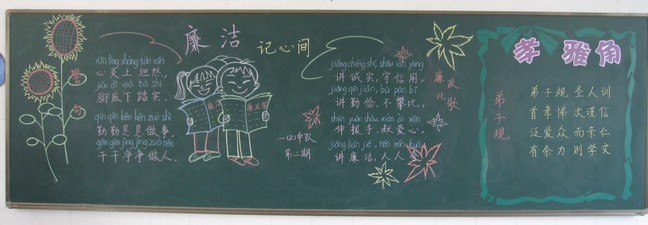 廉洁 记心间
警句
xīn líng shàng tǎn rán
心灵上坦然
jiǎo dǐ xià tā shí
脚底下踏实。
qín qín kěn kěn zuò shì
勤勤恳恳做事,
gān gān jìng jìng zuò rén
干干净净做人。
一(2)中队
第二期
廉政儿歌
jiǎng chéng shí, shǒu xìn yòng
讲诚实,守信用,
jiǎng qín jiǎn, bù pān bǐ
讲勤俭,不攀比。
shēn yuán shǒu xiàn ài xīn
伸援手,献爱心。
jiǎng lián jié, rén rén
讲廉洁,人人
孝雅角
弟子规
弟子规 圣人训
首孝悌 次谨信
泛爱众 而亲仁
有余力 则学文